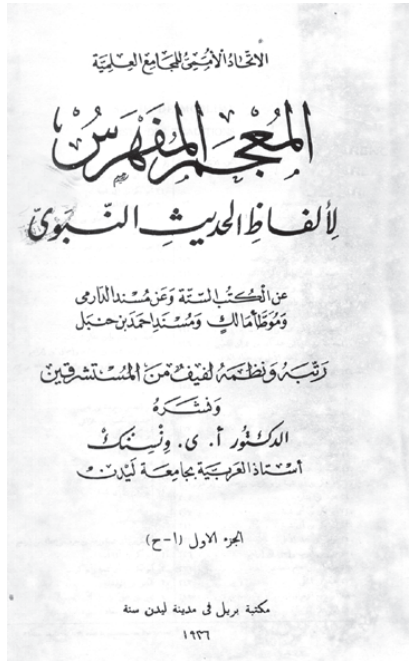 الاتحاد الأممى للمجامع العلمية
المُعْجَمُ المُفَهْرَسُ
لِأَلفَاظِ الحَديثِ النَّبَوىّ
عن الكتب الستة وعن مسند الدارمى
وموطأ مالك ومسند احمد بن حنبل
رتبه ونظمه لفيف من المستشرقين
ونشره
الدكتور أ. ى. ونسنك
أستاذ العربية بجامعة ليدن
الجزء الاول (ا-ح)
مكتبة بريل فى مدينة ليدن سنة
١٩٣٦